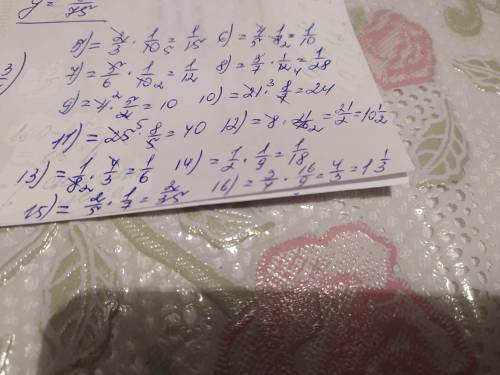 y = 2/75
3
5) = 2/3 · 1/10 5 = 1/15 6) = 4/5 · 1/8 2 = 1/10
7) = 5/6 · 1/10 2 = 1/12 8) = 3/7 · 1/12 4 = 1/28
9) = 4 2 · 5/2 = 10 10) = 21 3 · 8/7 = 24
11) = 25 5 · 8/5 = 40 12) = 8 · 21/16 2 = 21/2 = 10 1/2
13) = 1/8 2 · 4/3 = 1/6 14) = 1/2 · 1/9 = 1/18
15) = 2/5 · 1/7 = 2/35 16) = 3/4 · 16/9 = 4/3 = 1 1/3